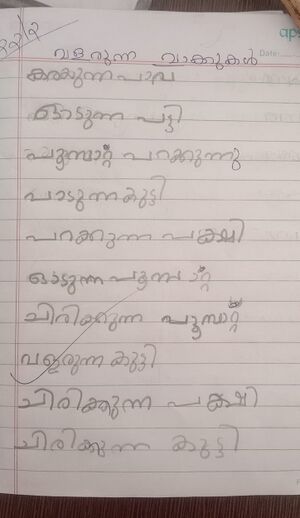 വളരുന്ന വാക്കുകൾ
Date:
കരക്കുന്ന പാവ
ഓടുന്ന പട്ടി
പൂമ്പാറ്റ പറക്കുന്നു
പാടുന്ന കുട്ടി
പറക്കുന്ന പക്ഷി
ഓടുന്ന പൂമ്പാറ്റ
ചിരിക്കുന്ന പൂമ്പാറ്റ
വളരുന്ന കുട്ടി
ചിരിക്കുന്ന പക്ഷി
ചിരിക്കുന്ന കുട്ടി